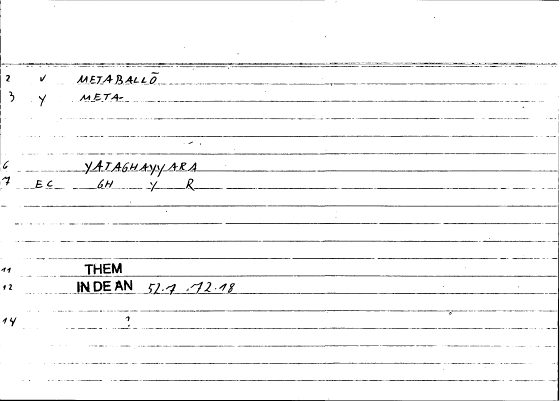 2 v METABALLŌ
3 y META-
6 YATAGHAYYARA
7 EC GH Y R
11 THEM
12 IN DE AN 52.7 .12.18
14 ?